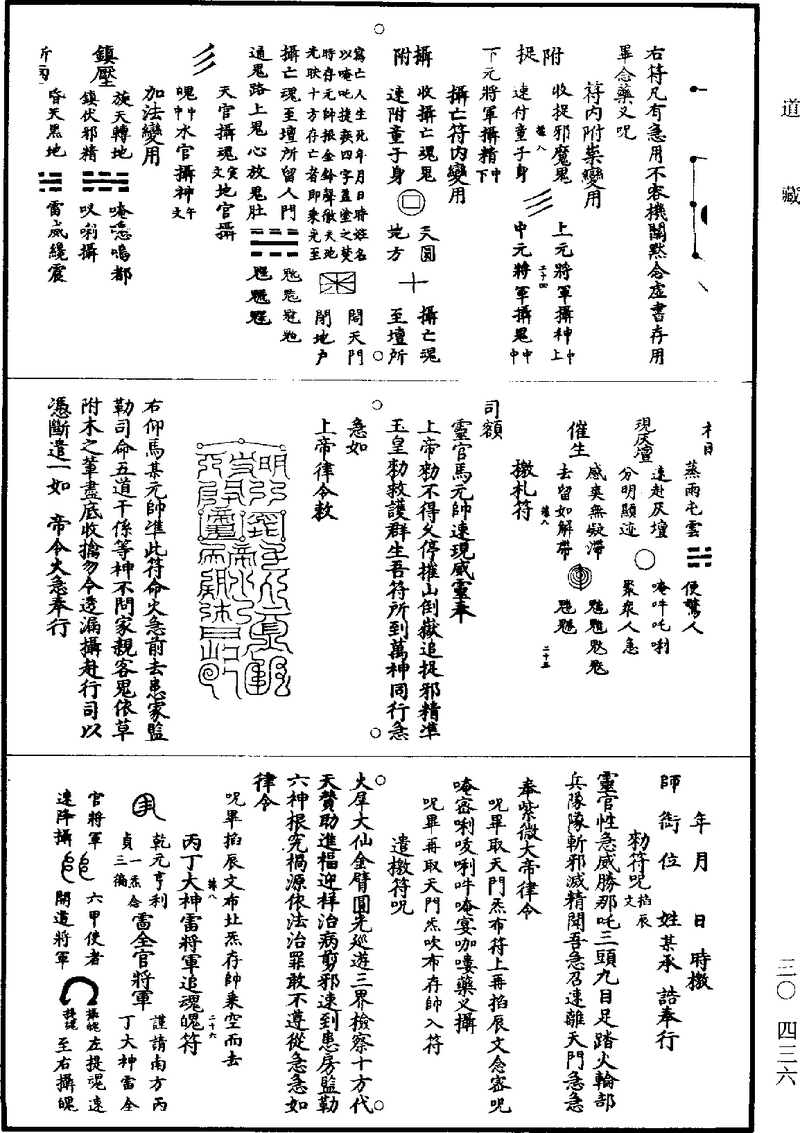 道藏
三〇 四三六
右符凡有急用不容機關默念虛書存用
畢念藥乂呪
符內附祟變用
附 收捉邪魔鬼 上元將軍攝神中上
捉 速付童子身 中元將軍攝鬼中中
下元將軍攝精中下
攝亡符內變用
攝 收攝亡魂鬼 天圓 攝亡魂
附 速附童子身 地方 至壇所
寫亡人生死年月日時姓名
以唵吒捉疾四字蓋塗之焚
時存元帥振金鈴聲徹天地
光照十方存亡者即乘光至
開天門
閉地户
攝亡魂至壇所留人門
通鬼路上鬼心放鬼肚
天官攝魂寅文地官攝
魄中中水官攝神午文
加法變用
鎮壓 旋天轉地 唵嗚都
鎮伏邪精 唎攝
昏天黑地 雷威纔震
蒸雨屯雲 便驚人
現灰壇 速赴灰壇 唵吽吒唎
分明顯迹 眾衆人急
催生 感奕無礙滯
去留如解帶
二十五
檄札符
司額
靈官馬元帥速現威靈奉
上帝勑不得久停摧山倒嶽追捉邪精準
玉皇勑救護群生吾符所到萬神同行急
急如
上帝律令敕
右仰馬某元帥準此符命火急前去患家監
勒司命五道干係等神不問家親客鬼依草
附木之輩盡底收擒勿令透漏攝赴行司以
憑斷遣一如 帝令火急奉行
年 月 日 時檄
師 銜 位 姓某承 誥奉行
勑符呪掐辰文
靈官性急威勝那吒三頭九目足踏火輪部
兵隊隊斬邪滅精聞吾急召速離天門急急
奉紫微大帝律令
呪畢取天門炁布符上再掐辰文念密呪
唵密唎吱唎吽唵宴咖嘍藥乂攝
呪畢再取天門炁吹布存帥入符
遣檄符呪
火犀大仙金臂圓光巡遊三界檢察十方代
天贊助進福迎祥治病剪邪速到患房監勒
六神根究禍源依法治罪敢不遵從急急如
律令
呪畢掐辰文布北炁存帥乘空而去
丙丁大神雷將軍追魂魄符
二十六
乾元亨利 雷全官將軍 謹請南方丙
貞一炁念三徧 丁大神雷全
官將軍 六甲使者 左捉魂速
速降攝 開道將軍 至右攝魄